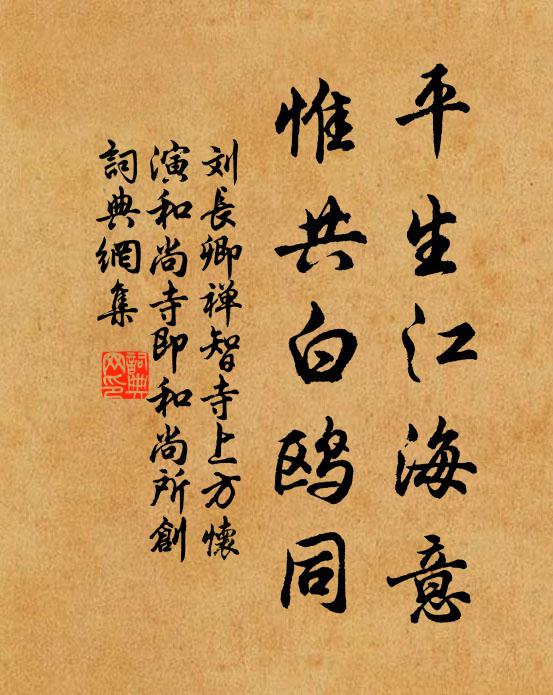 平生江海意
惟共白鸥同
刘長卿禅智寺上方懷
演和尚寺即和尚所創
詞典網集
詞典網印